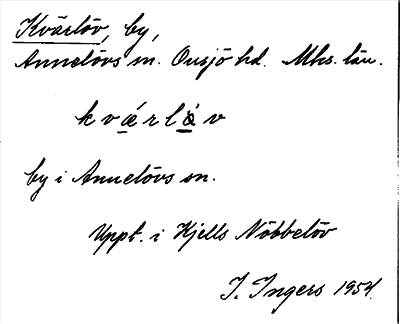 Kvärlöv, by,
Annelövs sn. Onsjö hd. Mhs. län.
k v æ̀ r l ö̀ v
by i Annelövs sn.
Uppt. i Kjells Nöbbelöv
I. Ingers 1954.